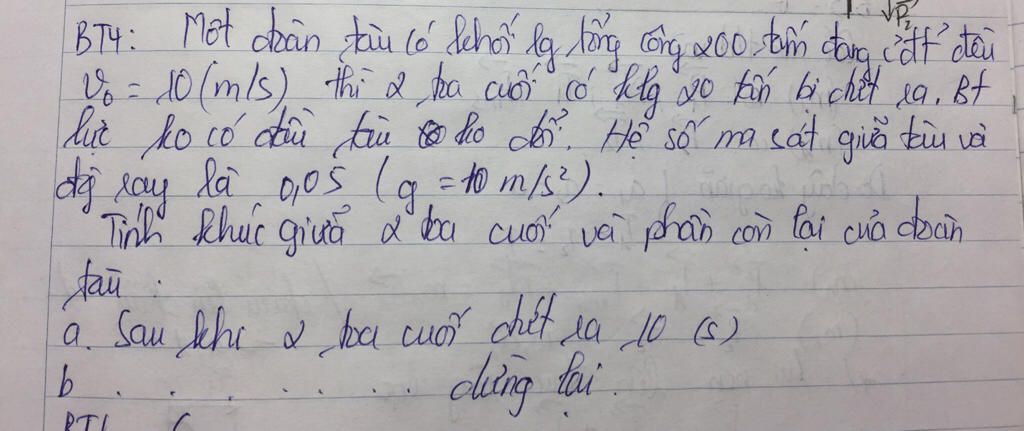 √P₂
BT4: Một đoàn tàu có khối lg tổng cộng 200 tấn đang cđtt đều
v₀ = 10 (m/s) thì 2 toa cuối có klg 20 tấn bị chết ra. Bt
lực ko có đầu tàu ko đổi. Hệ số ma sát giữa tàu và
đg ray là 0,05 (g = 10 m/s²).
Tính khúc giữa 2 toa cuối và phần còn lại của đoàn
tàu :
a. Sau khi 2 toa cuối chết ra 10 (s)
b . . . . . . . dừng lại.